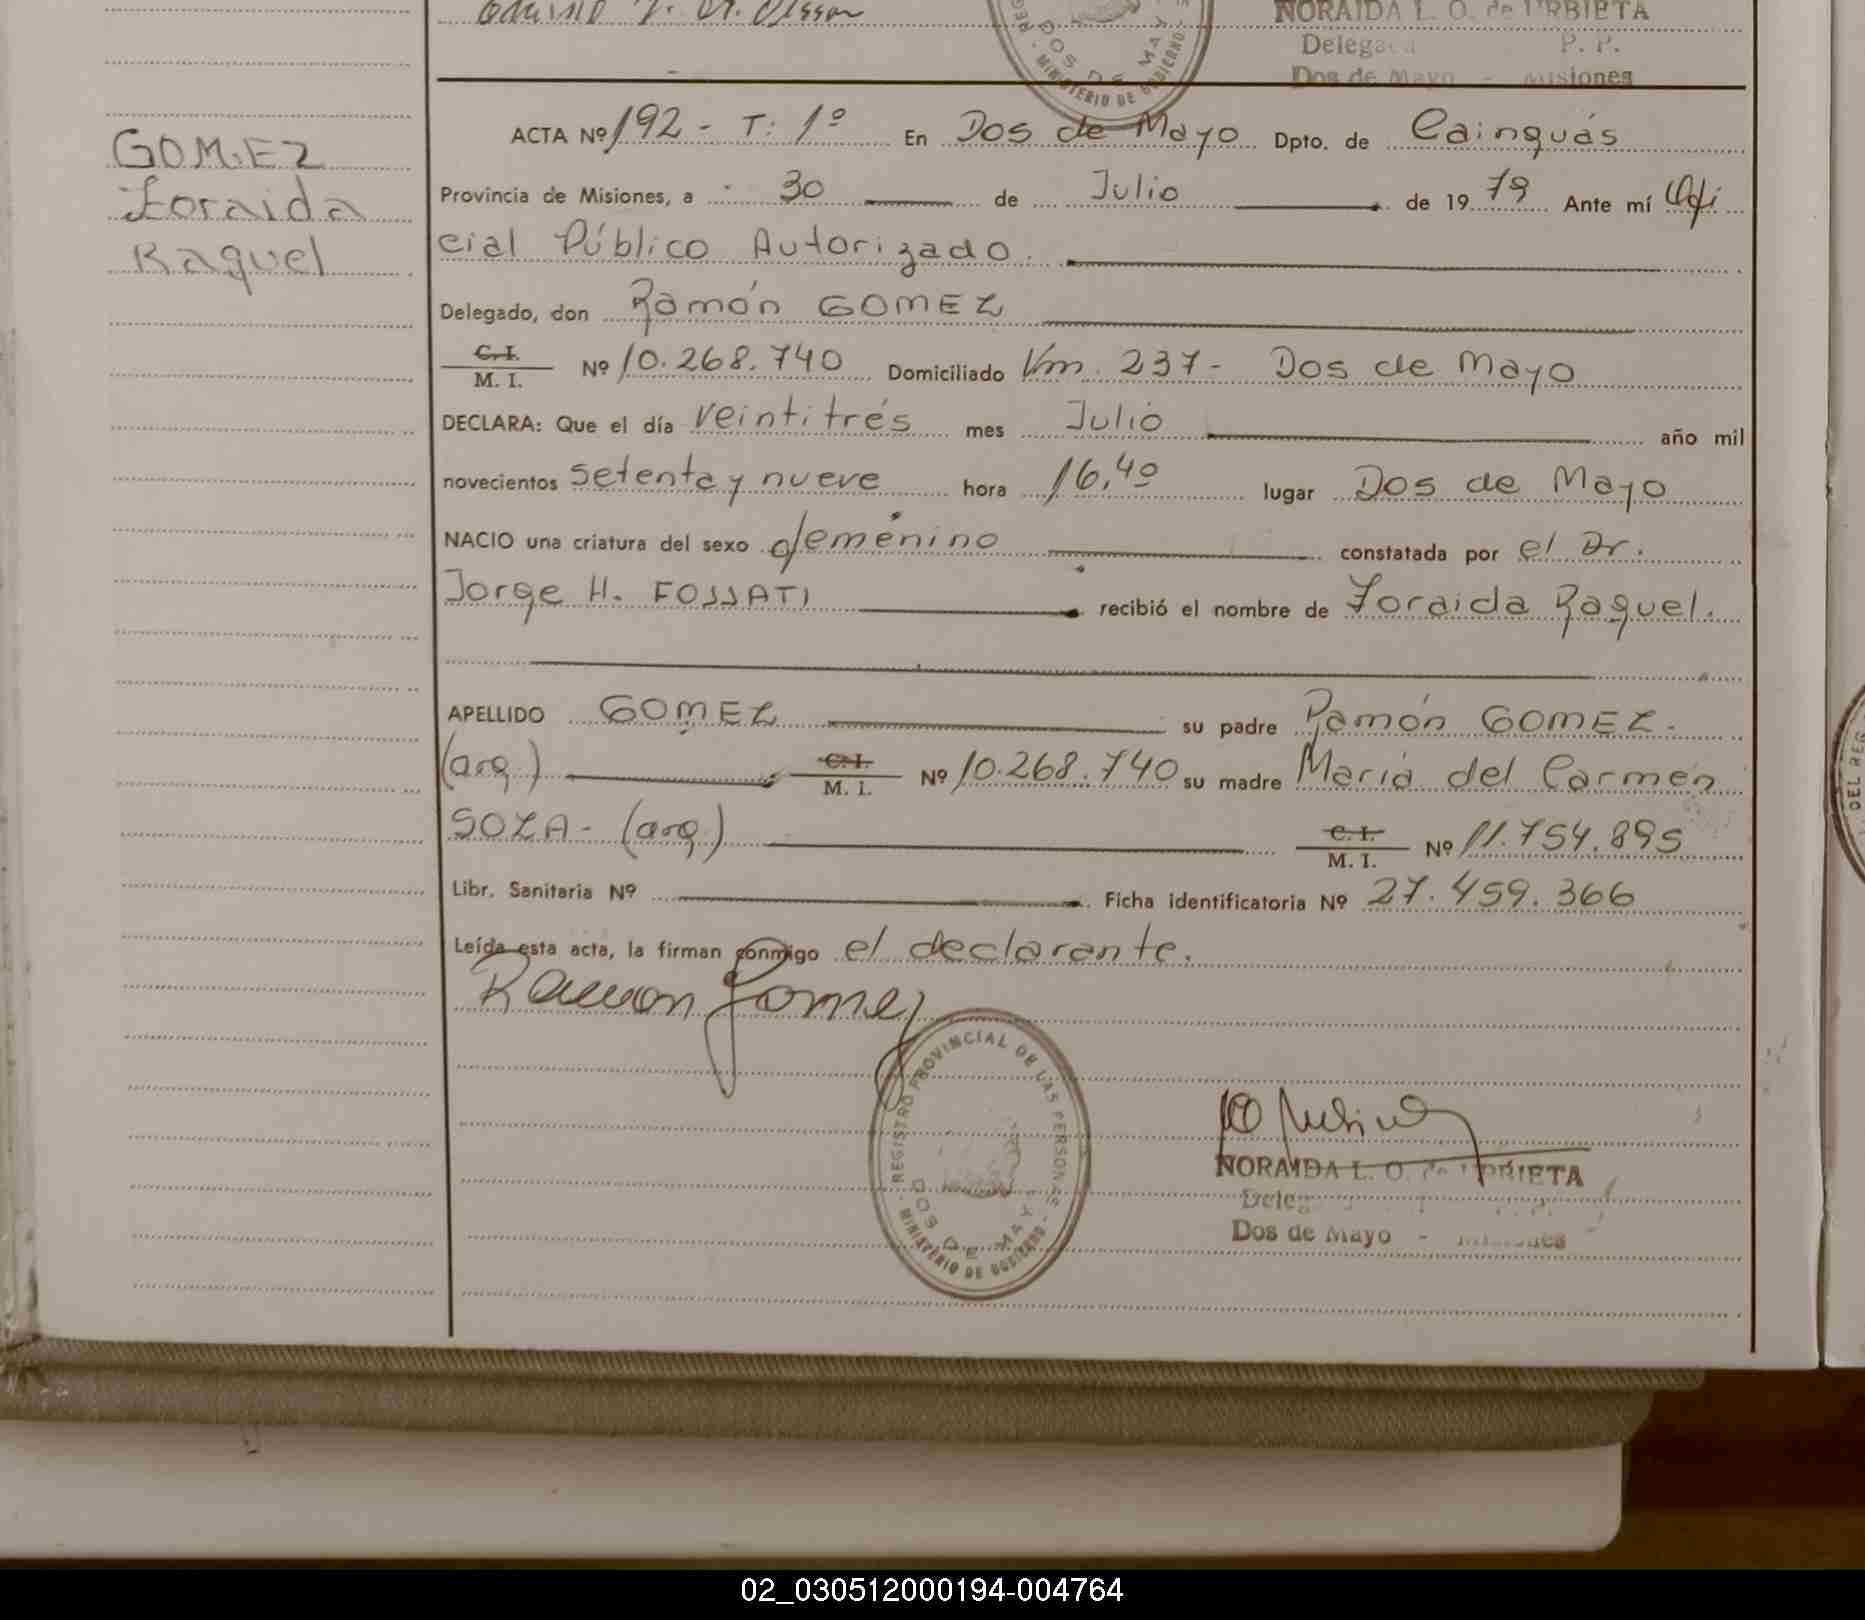 NORAIDA L. O. de URBIETA
Delegada P. P.
Dos de Mayo - Misiones
MINISTERIO DE GOBIERNO
DOS DE MAYO
GOMEZ
Zoraida
Raquel
ACTA Nº 192 - T: 1º En Dos de Mayo Dpto. de Cainguás
Provincia de Misiones, a 30 de Julio de 1979 Ante mí Ofi
cial Público Autorizado.
Delegado, don Ramón GOMEZ
C. I. / M. I. Nº 10.268.740 Domiciliado Km. 237 - Dos de Mayo
DECLARA: Que el día veintitrés mes Julio año mil
novecientos setenta y nueve hora 16,40 lugar Dos de Mayo
NACIO una criatura del sexo femenino constatada por el Dr.
Jorge H. FOSSATI recibió el nombre de Zoraida Raquel.
APELLIDO GOMEZ su padre Ramón GOMEZ.
(arg.) C. I. / M. I. Nº 10.268.740 su madre María del Carmen
SOZA - (arg.) C. I. / M. I. Nº 11.754.895
Libr. Sanitaria Nº Ficha identificatoria Nº 27.459.366
Leída esta acta, la firman conmigo el declarante.
Ramon Gomez
REGISTRO PROVINCIAL DE LAS PERSONAS
DOS DE MAYO
MINISTERIO DE GOBIERNO
NORAIDA L. O. de URBIETA
Dos de Mayo - Misiones
DEL REG
02_030512000194-004764